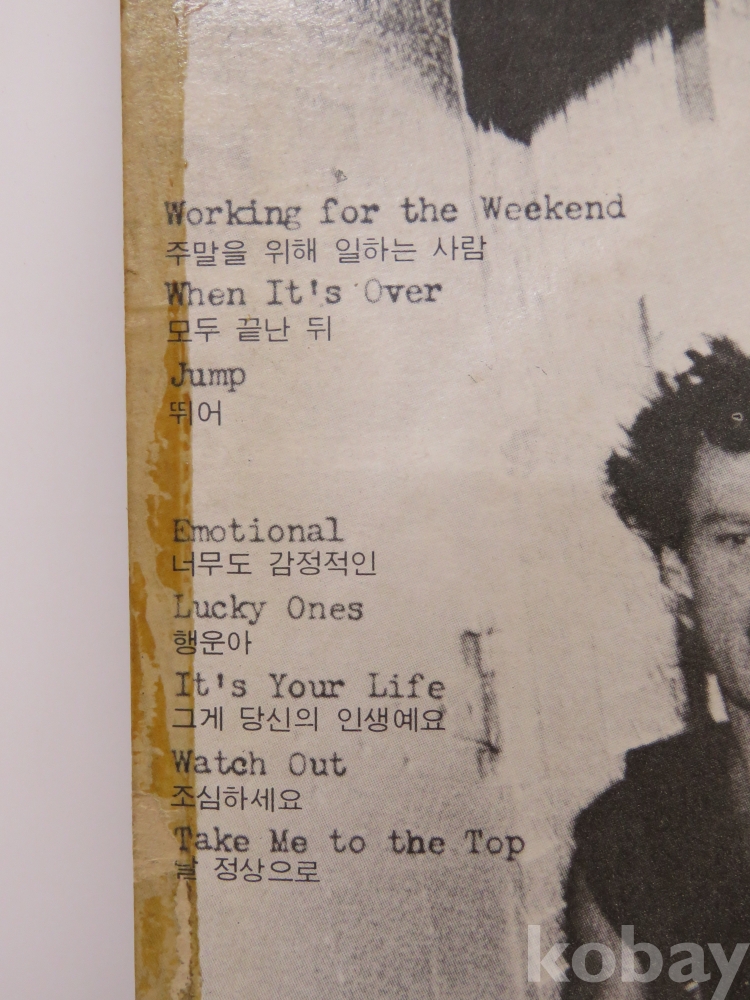 Working for the Weekend
주말을 위해 일하는 사람
When It's Over
모두 끝난 뒤
Jump
뛰어
Emotional
너무도 감정적인
Lucky Ones
행운아
It's Your Life
그게 당신의 인생예요
Watch Out
조심하세요
Take Me to the Top
날 정상으로
kobay